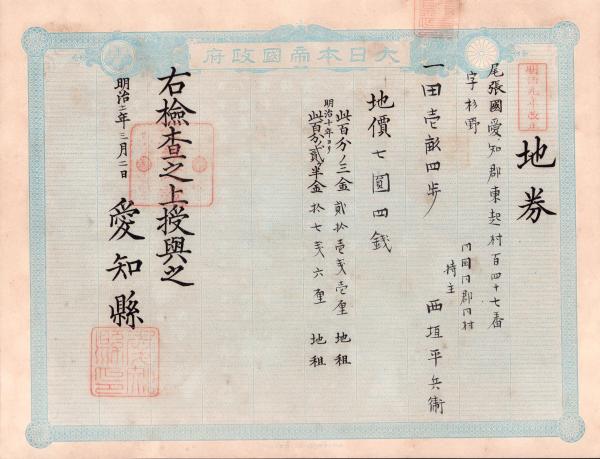 大日本帝國政府
地券
尾張國愛知郡東起村百四十七番
字杉野
同國同郡同村
持主 西垣平兵衛
一田壱畝四歩
地價七圓四銭
此百分ノ三金 貳拾壱銭壱厘 地租
明治十年ヨリ
此百分ノ貳半金 拾七銭六厘 地租
右檢査之上授與之
明治十二年三月二日
愛知縣